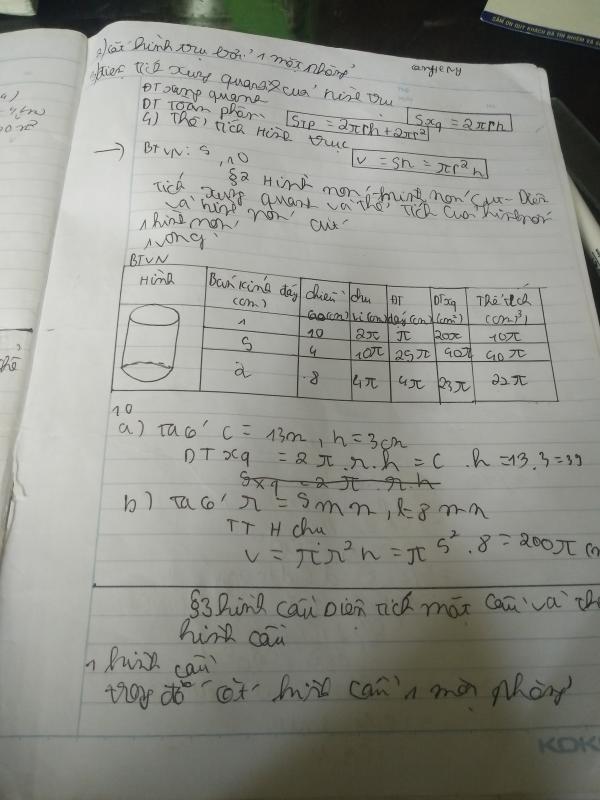 2) Cắt hình trụ bởi 1 mặt phẳng
3) Diện tích xung quanh của hình trụ
DT xung quanh Sxq = 2πrh
DT Toàn phần Stp = 2πrh + 2πr²
4) Thể tích Hình trục
V = Sh = πr²h
→ BTVN: 5, 10
§2 Hình nón - hình nón cụt - Diện
tích xung quanh và thể tích của hình nón
và hình nón cụt
1 hình nón
BTVN
Hình Bán kính đáy (cm) chiều cao (cm) chu vi (cm) ĐT đáy (cm) DTxq (cm²) Thể tích (cm)³
1 10 2π π 20π 10π
5 4 10π 25π 40π 40π
2 8 4π 4π 23π 22π
10
a) Ta có C = 13m, h = 3cm
DTxq = 2π.r.h = C.h = 13.3 = 39
Sxq = 2π.r.h
b) Ta có r = 5mm, h = 8mm
TT H chụ
V = π.r²h = π 5².8 = 200π
§3 hình cầu Diện tích mặt cầu và th
hình cầu
1 hình cầu
trong đó cắt hình cầu 1 mặt phẳng
KOK